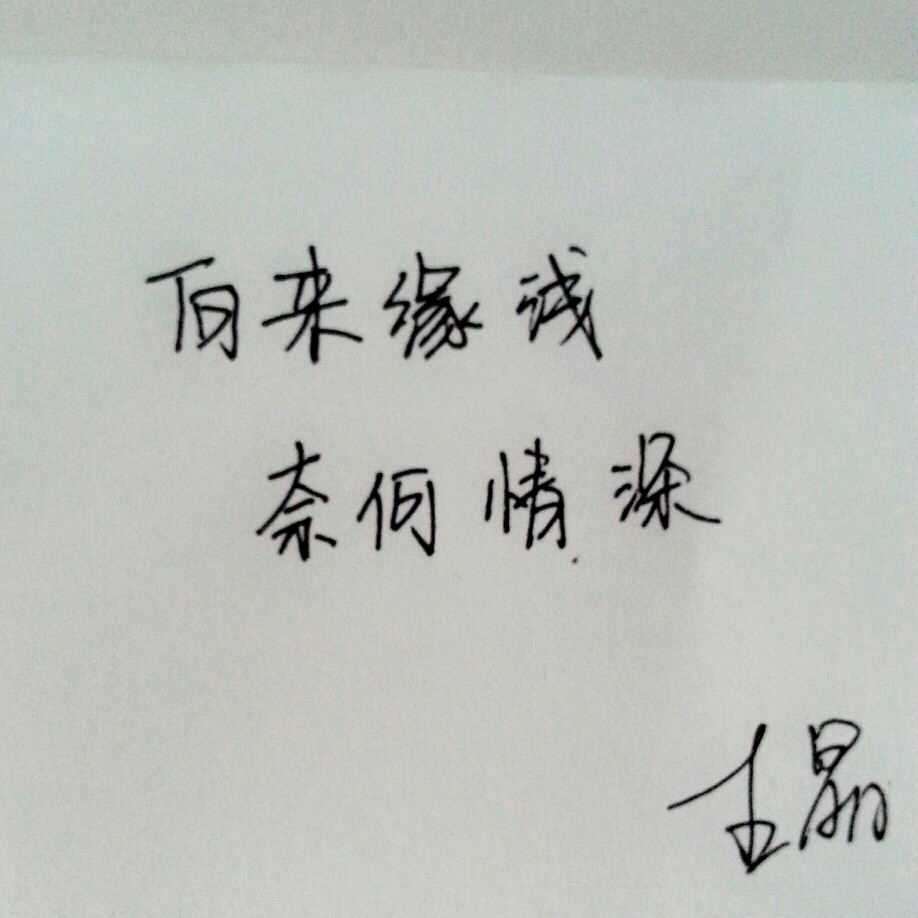 向来缘浅
奈何情深
王晶